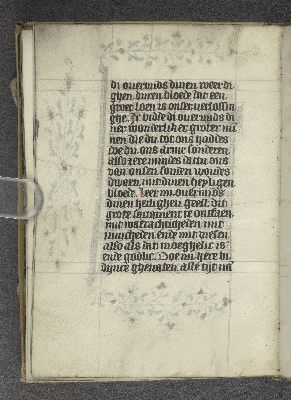 di ouermids dinen weerdi
ghen duren bloede dat een
groet loen is onser verlossin
ghe. Ic bidde di ouermids di
ner wonderliker groter mi
nen die du tot ons haddes
doe du ons arme sonderen
also zere mindes dattu ons
van onsen sonden woudes
dwaen mit dinen heyligen
bloede. Leer mi ouermids
dinen heilighen geest dit
grote sacrament te ontfaen
mit waerachticheden mit
innicheden ende mit vresen
also als dat moeghelic is
ende godlic. Doe mi here bi
dijnre ghenaden alle tijt na